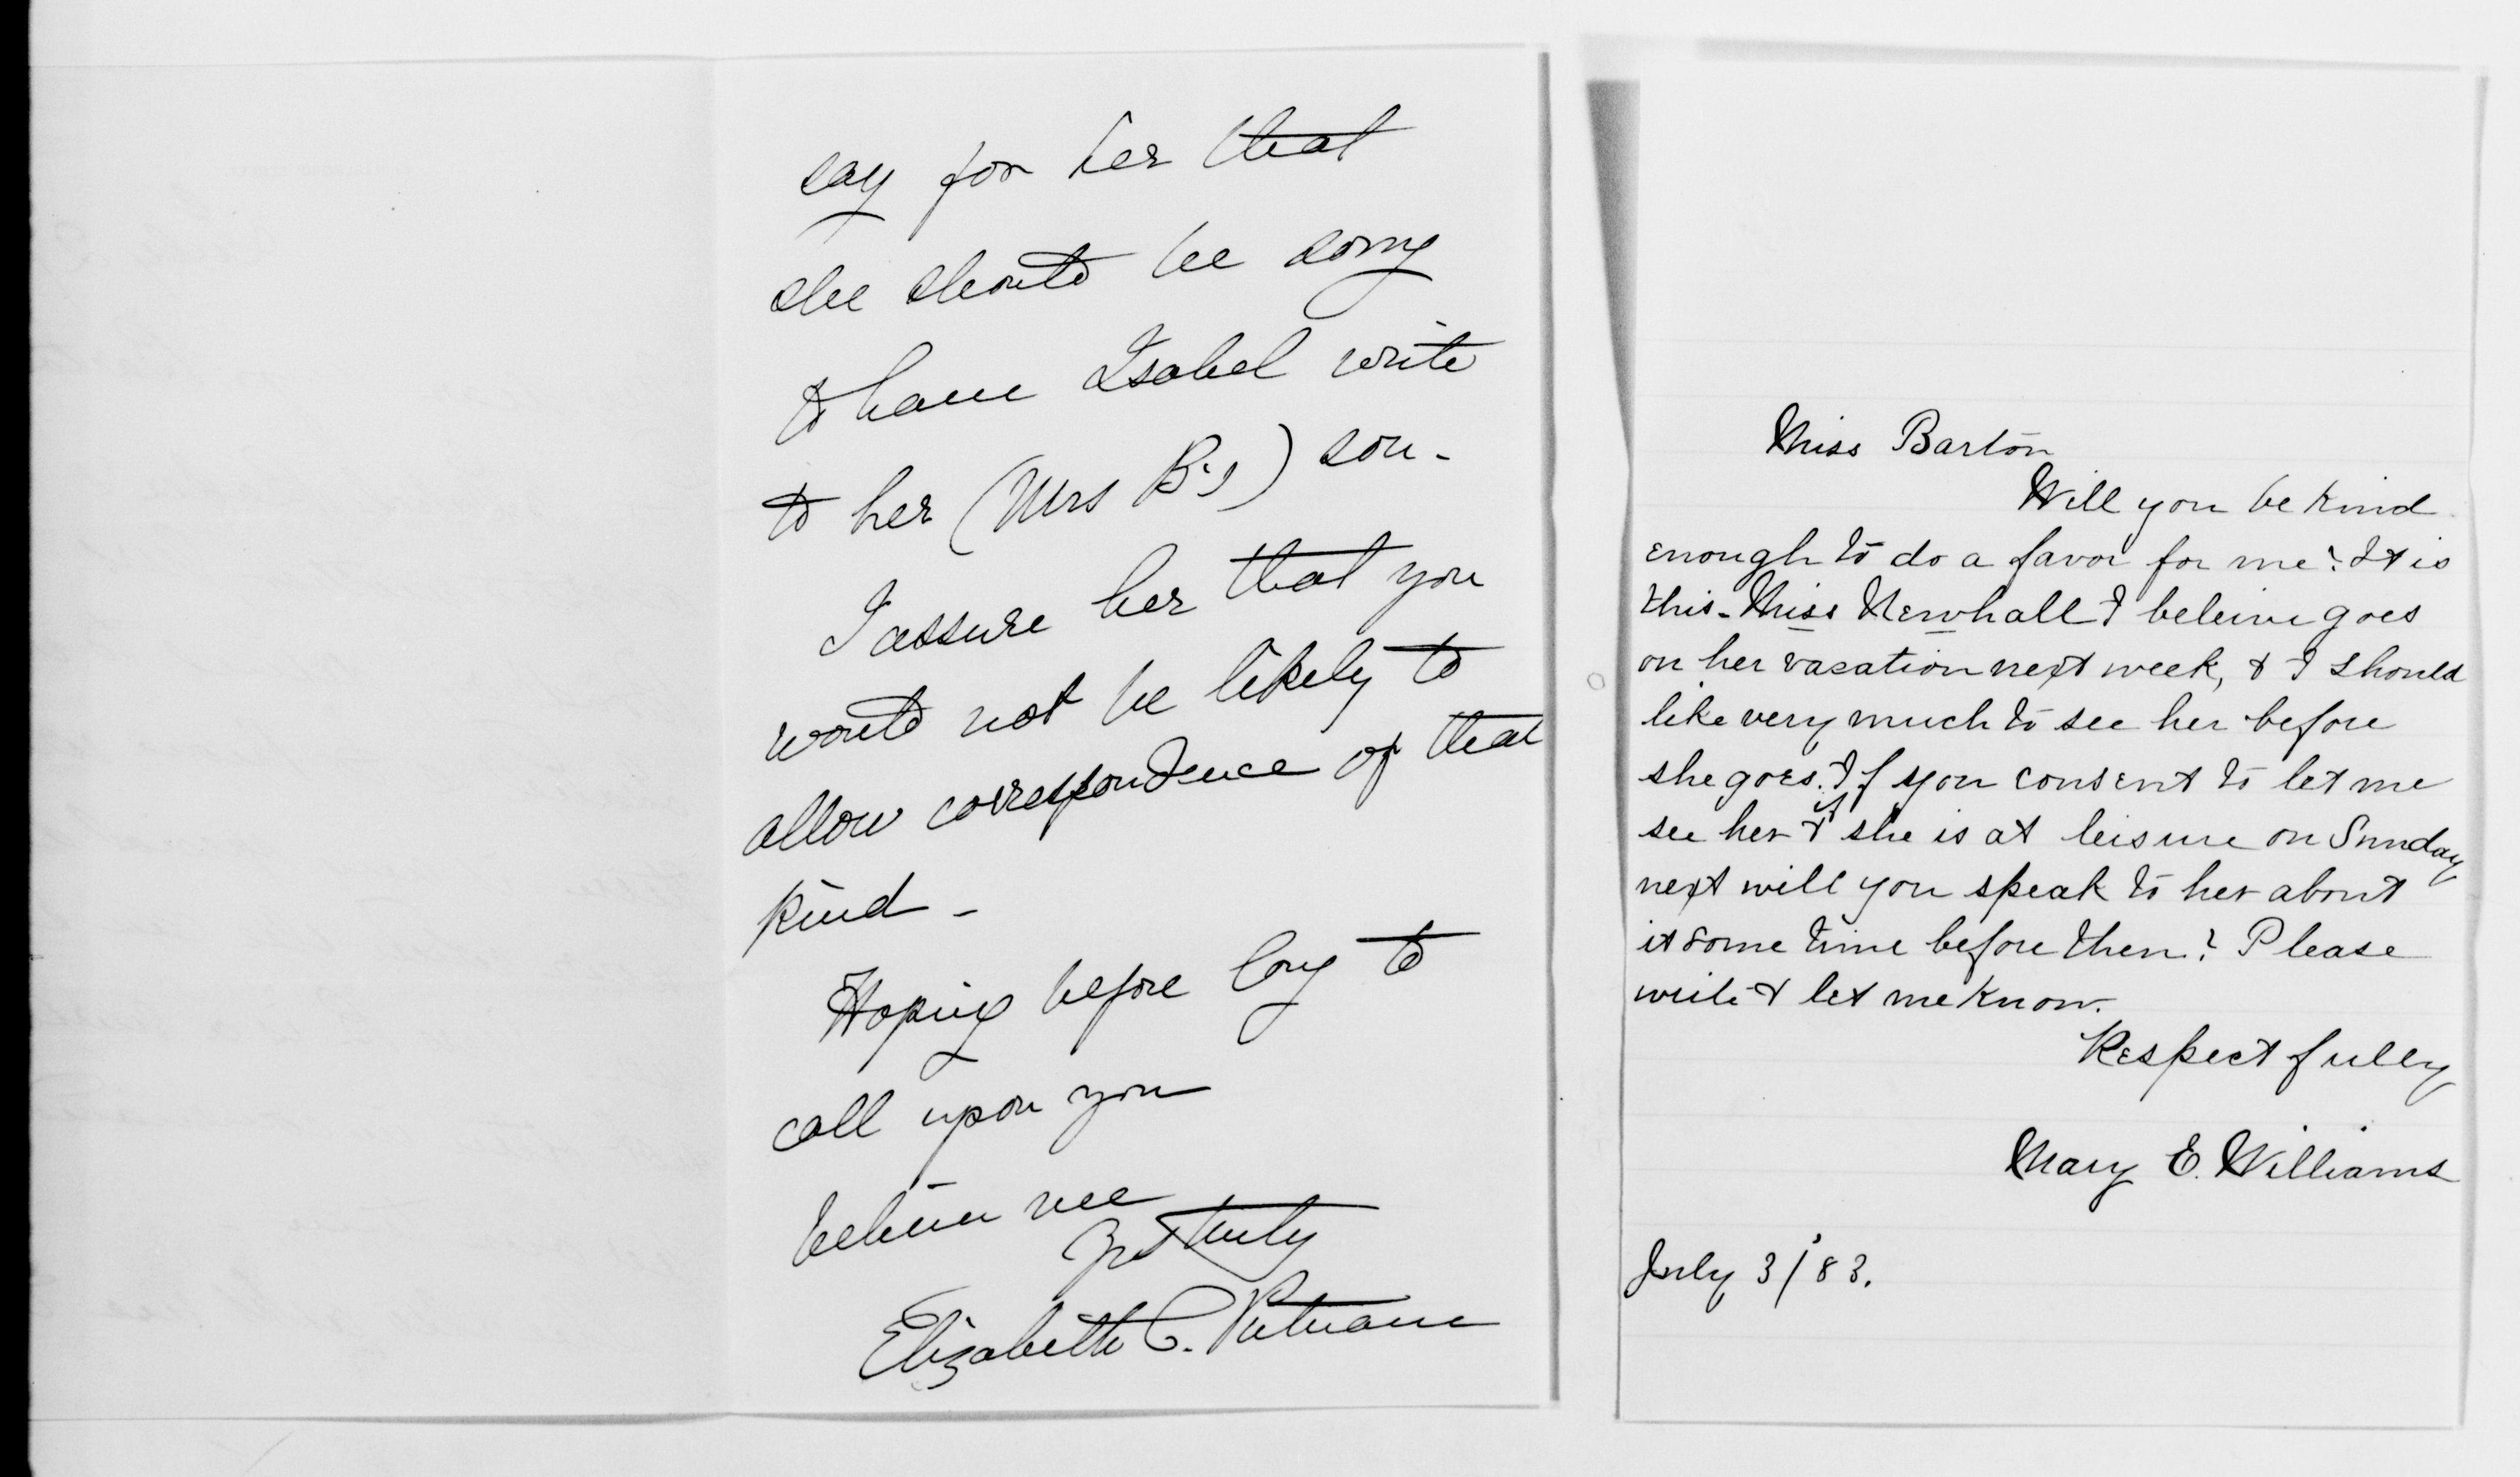 say for her that
she should be sorry
to have Isabel write
to her (Mrs B's) son -
I assure her that you
would not be likely to
allow correspondence of that
kind -
Hoping before long to
call upon you
believe me
Yrs truly
Elizabeth C. Putnam
Miss Barton
Will you be kind
enough to do a favor for me? It is
this - Miss Newhall I beleive goes
on her vacation next week, & I should
like very much to see her before
she goes. If you consent to let me
see her & if she is at leisure on Sunday
next will you speak to her about
it some time before then? Please
write & let me know.
Respectfully
Mary E. Williams
July 3/'83.